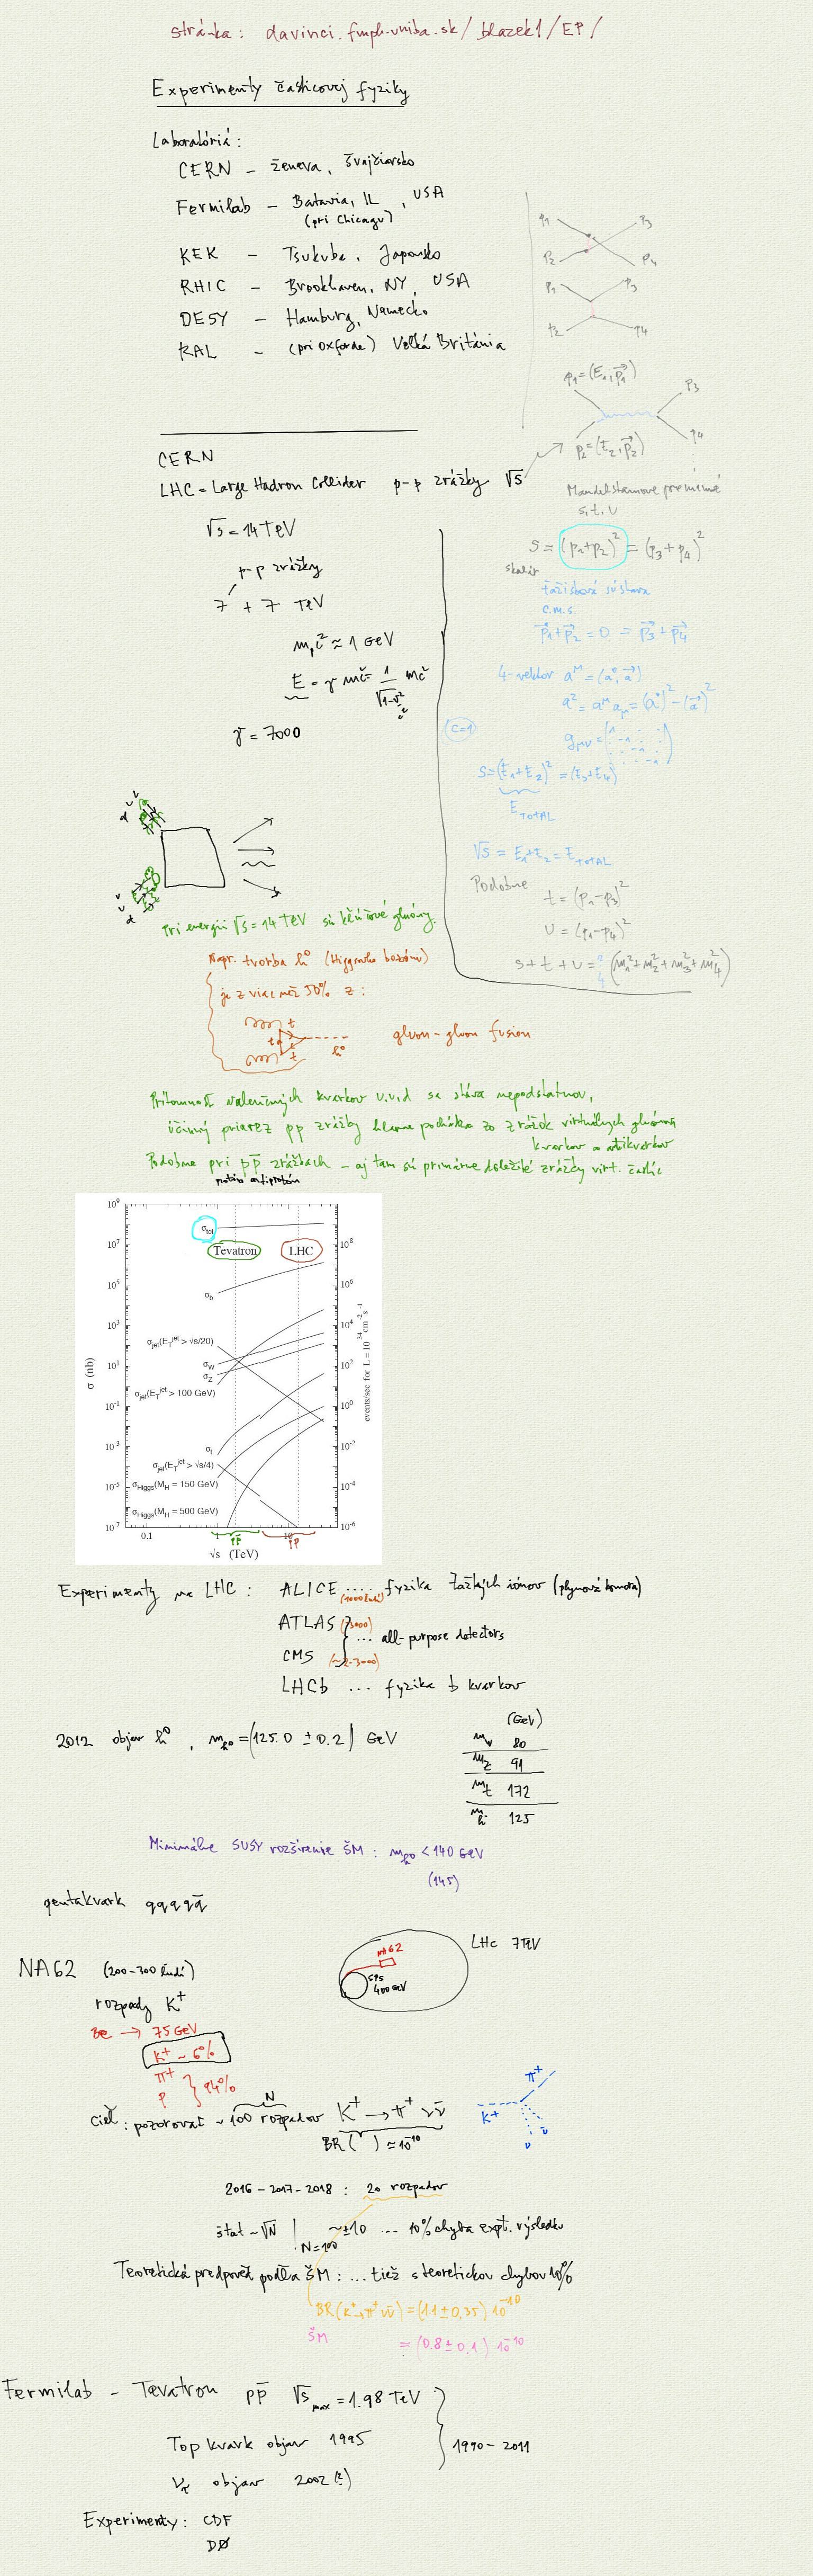 stránka: davinci.fmph.uniba.sk/ blazek1/EP/
Experimenty časticovej fyziky
Laboratóriá:
CERN – Ženeva, Švajčiarsko
Fermilab – Batavia, IL, USA
(pri Chicagu)
KEK – Tsukuba, Japonsko
RHIC – Brookhaven, NY, USA
DESY – Hamburg, Nemecko
RAL – (pri Oxforde) Veľká Británia
p1 p3
p2 p4
p1 p3
p2 p4
p1=(E1,p⃗1) p3
p2=(E2,p⃗2) p4
CERN
LHC = Large Hadron Collider p-p zrážky √s
√s = 14 TeV
p-p zrážky
7 + 7 TeV
mpc² ≈ 1 GeV
E = γmc² = 1/√(1-v²/c²) mc²
γ = 7000
Mandelstamove premenné
s, t, u
s = (p1+p2)² = (p3+p4)²
skalár
ťažisková sústava
c.m.s.
p⃗1+p⃗2 = 0 = p⃗3+p⃗4
4-vektor aᵘ = (a⁰, a⃗)
a² = aᵘaμ = (a⁰)² – (a⃗)²
c=1
gμν = (1 -1 -1 -1)
s = (E1+E2)² = (E3+E4)²
E TOTAL
√s = E1+E2 = E TOTAL
Podobne t = (p1-p3)²
u = (p1-p4)²
s+t+u = (m1²+m2²+m3²+m4²)
u u d
u u d
Pri energii √s = 14 TeV sú kľúčové gluóny.
Napr. tvorba h⁰ (Higgsovho bozónu)
je z viac než 50% z:
t t t h⁰ gluon-gluon fusion
Prítomnosť valenčných kvarkov u,u,d sa stáva nepodstatnou,
účinný prierez pp zrážky hlavne pochádza zo zrážok virtuálnych gluónov
kvarkov a antikvarkov
Podobne pri pp̄ zrážkach – aj tam sú primárne dôležité zrážky virt. častíc
protón antiprotón
10⁹
10⁷
10⁵
10³
10¹
10⁻¹
10⁻³
10⁻⁵
10⁻⁷
σ (nb)
σtot
Tevatron LHC
σb
σjet(ET^jet > √s/20)
σW
σZ
σjet(ET^jet > 100 GeV)
σt
σjet(ET^jet > √s/4)
σHiggs(MH = 150 GeV)
σHiggs(MH = 500 GeV)
10⁸
10⁶
10⁴
10²
10⁰
10⁻²
10⁻⁴
10⁻⁶
events/sec for L = 10³⁴ cm⁻² s⁻¹
0.1 1 10
pp̄ pp
√s (TeV)
Experimenty na LHC: ALICE .... fyzika ťažkých iónov (plynová komora)
(1000 ľudí)
ATLAS (~3000)
... all-purpose detectors
CMS (~2-3000)
LHCb ... fyzika b kvarkov
2012 objav h⁰, mh⁰ = (125.0 ± 0.2) GeV
(GeV)
mW 80
mZ 91
mt 172
mh 125
Minimálne SUSY rozšírenie ŠM: mh⁰ < 140 GeV
(145)
pentakvark qqqqq̄
NA62 (200-300 ľudí)
NA62
SPS
400 GeV
LHC 7TeV
rozpady K⁺
Be → 75 GeV
K⁺ ~ 6%
π⁺
p
94%
N
cieľ: pozorovať ~100 rozpadov K⁺ → π⁺ νν̄
BR( ) ≈ 10⁻¹⁰
K⁺ π⁺ ν ν̄
2016 – 2017 – 2018 : 20 rozpadov
štat ~ √N | N=100 ~ ±10 ... 10% chyba expt. výsledku
Teoretická predpoveď podľa ŠM: ... tiež s teoretickou chybou 10%
BR(K⁺→π⁺νν̄) = (1.1 ± 0.35) 10⁻¹⁰
ŠM = (0.8 ± 0.1) 10⁻¹⁰
Fermilab – Tevatron pp̄ √s max = 1.98 TeV
Top kvark objav 1995
1990 – 2011
ντ objav 2002 (?)
Experimenty: CDF
DØ